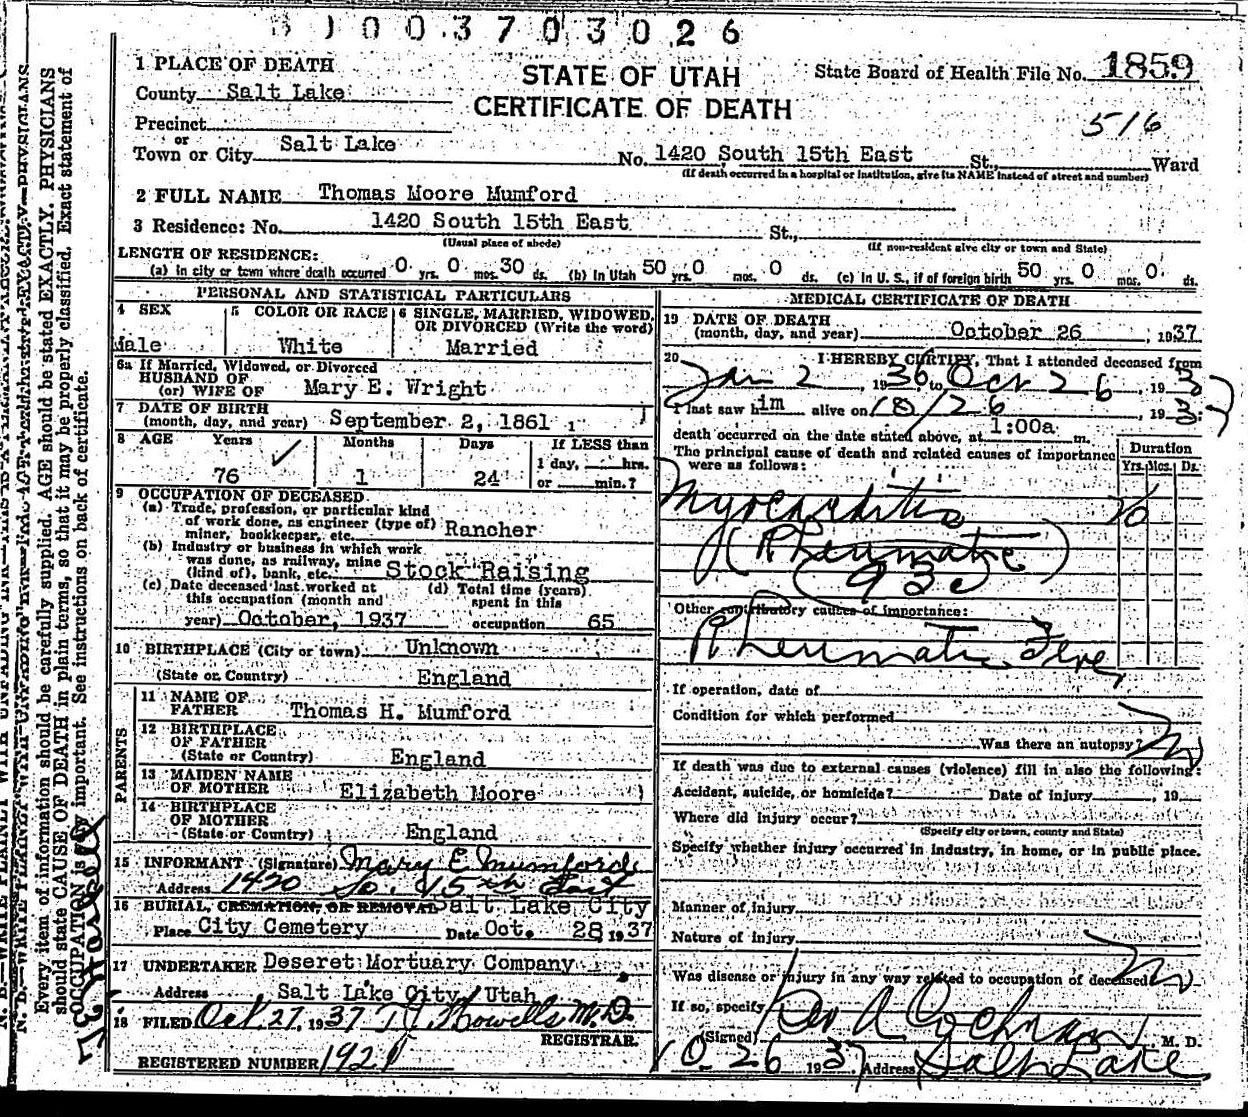 003703026
1 PLACE OF DEATH
County Salt Lake
Precinct
or
Town or City Salt Lake
STATE OF UTAH
CERTIFICATE OF DEATH
State Board of Health File No. 1859
516
No. 1420 South 15th East St., Ward
(If death occurred in a hospital or institution, give its NAME instead of street and number)
2 FULL NAME Thomas Moore Mumford
3 Residence: No. 1420 South 15th East St.,
(Usual place of abode) (If non-resident give city or town and State)
LENGTH OF RESIDENCE:
(a) in city or town where death occurred 0 yrs. 0 mos. 30 ds. (b) In Utah 50 yrs. 0 mos. 0 ds. (c) In U. S., if of foreign birth 50 yrs. 0 mos. 0 ds.
PERSONAL AND STATISTICAL PARTICULARS
4 SEX Male
5 COLOR OR RACE White
6 SINGLE, MARRIED, WIDOWED, OR DIVORCED (Write the word) Married
6a If Married, Widowed, or Divorced
HUSBAND OF
(or) WIFE OF Mary E. Wright
7 DATE OF BIRTH
(month, day, and year) September 2, 1861
8 AGE Years 76 Months 1 Days 24 If LESS than
1 day, hrs.
or min.?
9 OCCUPATION OF DECEASED
(a) Trade, profession, or particular kind
of work done, as engineer (type of)
miner, bookkeeper, etc. Rancher
(b) Industry or business in which work
was done, as railway, mine
(kind of), bank, etc. Stock Raising
(c) Date deceased last worked at
this occupation (month and
year) October, 1937
(d) Total time (years)
spent in this
occupation 65
10 BIRTHPLACE (City or town) Unknown
(State or Country) England
PARENTS
11 NAME OF
FATHER Thomas H. Mumford
12 BIRTHPLACE
OF FATHER
(State or Country) England
13 MAIDEN NAME
OF MOTHER Elizabeth Moore
14 BIRTHPLACE
OF MOTHER
(State or Country) England
15 INFORMANT (Signature) Mary E Mumford
Address 1420 So. 15th East
16 BURIAL, CREMATION, OR REMOVAL Salt Lake City
Place City Cemetery Date Oct. 28, 1937
17 UNDERTAKER Deseret Mortuary Company
Address Salt Lake City, Utah
18 FILED Oct. 27, 1937 T J Howells M.D.
REGISTRAR.
REGISTERED NUMBER 1921
MEDICAL CERTIFICATE OF DEATH
19 DATE OF DEATH
(month, day, and year) October 26, 1937
20 I HEREBY CERTIFY, That I attended deceased from
Jan 2, 1936 to Oct 26, 1937
I last saw him alive on 10/26, 1937
death occurred on the date stated above, at 1:00a m.
The principal cause of death and related causes of importance
were as follows:
Duration
Yrs. Mos. Ds.
Myocarditis
(Rheumatic)
93c
Other contributory causes of importance:
Rheumatic Fever
If operation, date of
Condition for which performed
Was there an autopsy? No
If death was due to external causes (violence) fill in also the following:
Accident, suicide, or homicide? Date of injury , 19
Where did injury occur?
(Specify city or town, county and State)
Specify whether injury occurred in industry, in home, or in public place.
Manner of injury
Nature of injury
Was disease or injury in any way related to occupation of deceased No
If so, specify
(Signed) Cochran, M. D.
10-26 1937 Address Salt Lake
Every item of information should be carefully supplied. AGE should be stated EXACTLY. PHYSICIANS
should state CAUSE OF DEATH in plain terms, so that it may be properly classified. Exact statement of
OCCUPATION is very important. See instructions on back of certificate.